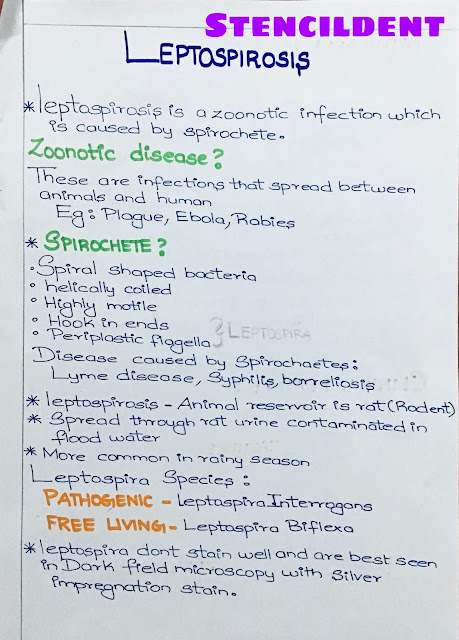 STENCILDENT
LEPTOSPIROSIS
* leptospirosis is a zoonotic infection which
is caused by spirochete.
Zoonotic disease?
These are infections that spread between
animals and human
Eg: Plague, Ebola, Rabies
* SPIROCHETE?
• Spiral shaped bacteria
• helically coiled
• Highly motile
• Hook in ends
• Periplastic flagella } LEPTOSPIRA
Disease caused by Spirochaetes:
Lyme disease, Syphilis, borreliosis
* leptospirosis - Animal reservoir is rat (Rodent)
* Spread through rat urine contaminated in
flood water
* More common in rainy season
Leptospira Species:
PATHOGENIC - Leptospira Interrogans
FREE LIVING - Leptospira Biflexa
* leptospira dont stain well and are best seen
in Dark field microscopy with silver
impregnation stain.